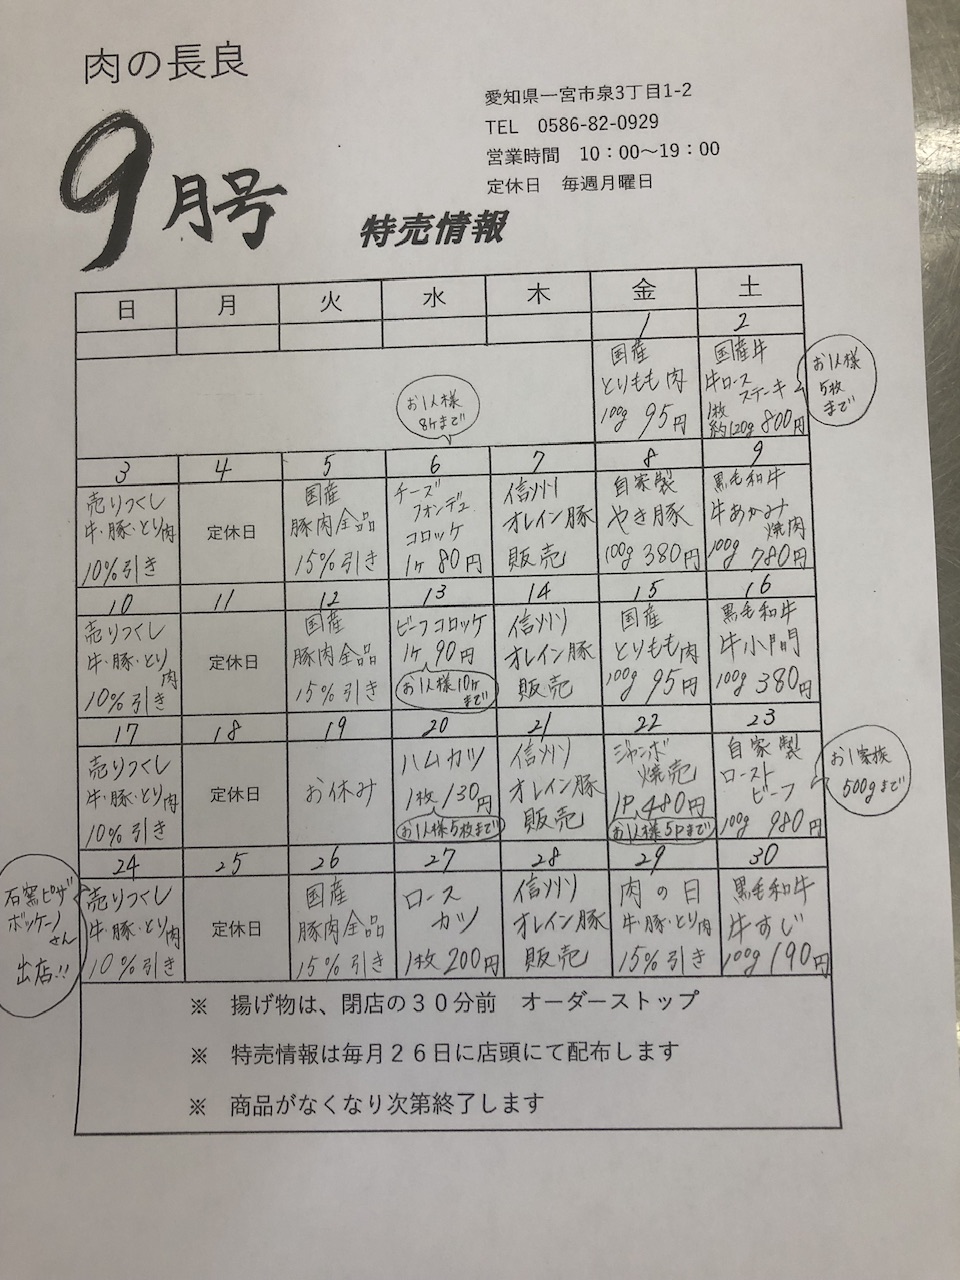 肉の長良
愛知県一宮市泉3丁目1-2
TEL 0586-82-0929
営業時間 10：00～19：00
定休日 毎週月曜日
9月号
特売情報
日 月 火 水 木 金 土
1
国産
とりもも肉
100g 95円
2
国産牛
牛ロース
ステーキ
1枚
約120g 800円
お1人様
5枚
まで
3
売りつくし
牛・豚・とり肉
10%引き
4
定休日
5
国産
豚肉全品
15%引き
お1人様
8ヶまで
6
チーズ
フォンデュ
コロッケ
1ヶ80円
7
信州
オレイン豚
販売
8
自家製
やき豚
100g 380円
9
黒毛和牛
牛あかみ
焼肉
100g 780円
10
売りつくし
牛・豚・とり
肉
10%引き
11
定休日
12
国産
豚肉全品
15%引き
13
ビーフコロッケ
1ヶ90円
お1人様10ヶ
まで
14
信州
オレイン豚
販売
15
国産
とりもも肉
100g 95円
16
黒毛和牛
牛小間
100g 380円
17
売りつくし
牛・豚・とり肉
10%引き
18
定休日
19
お休み
20
ハムカツ
1枚130円
お1人様5枚まで
21
信州
オレイン豚
販売
22
ジャンボ
焼売
1P 480円
お1人様5Pまで
23
自家製
ロースト
ビーフ
100g 980円
お1家族
500gまで
24
売りつくし
牛・豚・とり肉
10%引き
石窯ピザ
ボッケーノ
さん
出店!!
25
定休日
26
国産
豚肉全品
15%引き
27
ロース
カツ
1枚200円
28
信州
オレイン豚
販売
29
肉の日
牛・豚・とり肉
15%引き
30
黒毛和牛
牛すじ
100g 190円
※ 揚げ物は、閉店の３０分前 オーダーストップ
※ 特売情報は毎月２６日に店頭にて配布します
※ 商品がなくなり次第終了します